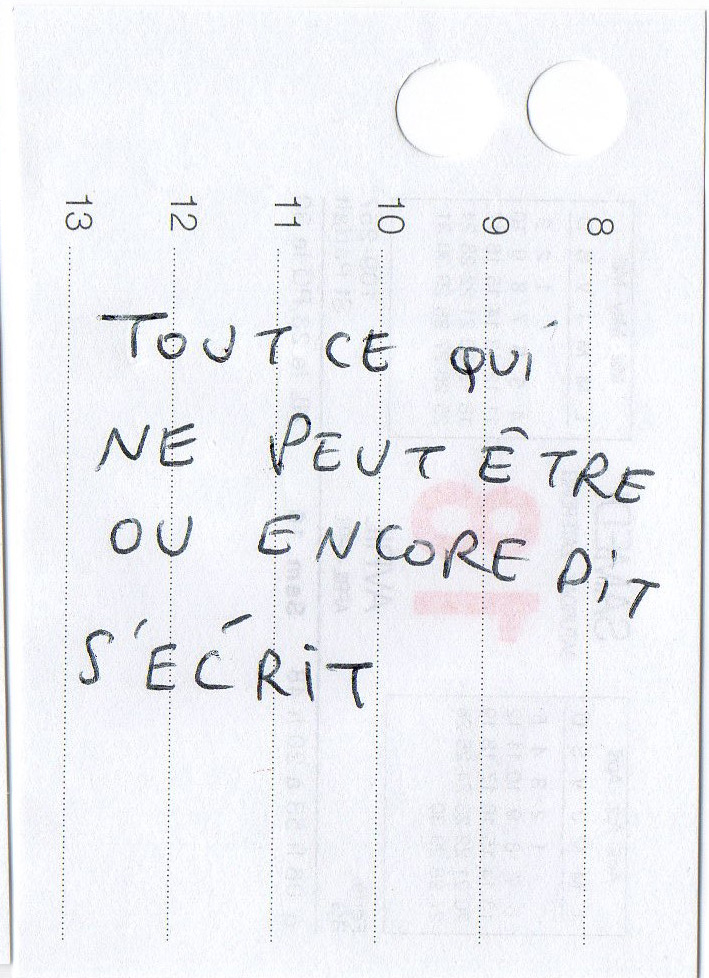 13 12 11 10 9 8
TOUT CE QUI
NE PEUT ÊTRE
OU ENCORE DIT
S'ÉCRIT